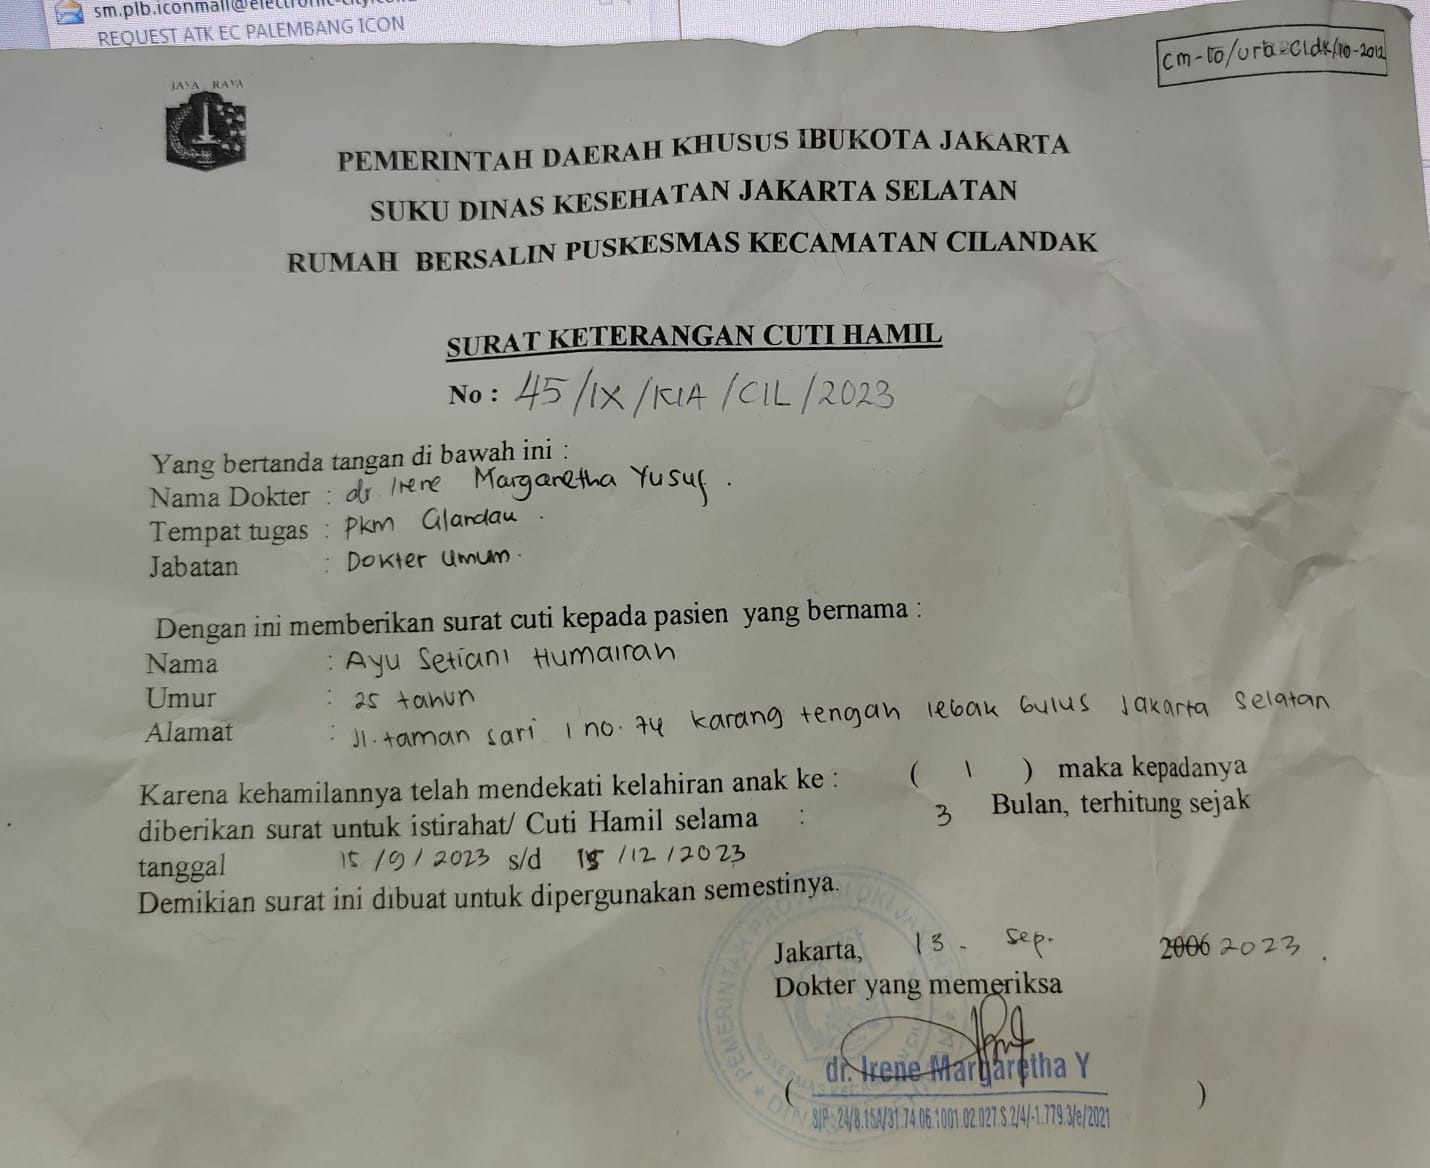 sm.plb.iconmall@electronic-city.co
REQUEST ATK EC PALEMBANG ICON
cm-10/urb-cldk/10-2012
JAYA RAYA
PEMERINTAH DAERAH KHUSUS IBUKOTA JAKARTA
SUKU DINAS KESEHATAN JAKARTA SELATAN
RUMAH BERSALIN PUSKESMAS KECAMATAN CILANDAK
SURAT KETERANGAN CUTI HAMIL
No : 45/IX/KIA/CIL/2023
Yang bertanda tangan di bawah ini :
Nama Dokter : dr Irene Margaretha Yusuf .
Tempat tugas : pkm Cilandak .
Jabatan : Dokter Umum.
Dengan ini memberikan surat cuti kepada pasien yang bernama :
Nama : Ayu Setiani Humairah
Umur : 25 tahun
Alamat : Jl. taman sari 1 no. 74 karang tengah lebak bulus Jakarta Selatan
Karena kehamilannya telah mendekati kelahiran anak ke : ( 1 ) maka kepadanya
diberikan surat untuk istirahat/ Cuti Hamil selama : 3 Bulan, terhitung sejak
tanggal 15/9/2023 s/d 15/12/2023
Demikian surat ini dibuat untuk dipergunakan semestinya.
Jakarta, 13 - Sep. 2006 2023 .
Dokter yang memeriksa
dr. Irene Margaretha Y
( )
SIP : 24/8.15A/31.74.06.1001.02.027.S.2/4/-1.779.3/e/2021